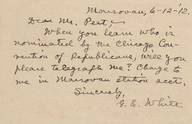 Marsovan, 6-12-'12.
Dear Mr. Peet:-
When you learn who is
nominated by the Chicago Con-
vention of Republicans, will you
please telegraph me? Charge to
me in Marsovan station acct.
Sincerely,
G. E. White